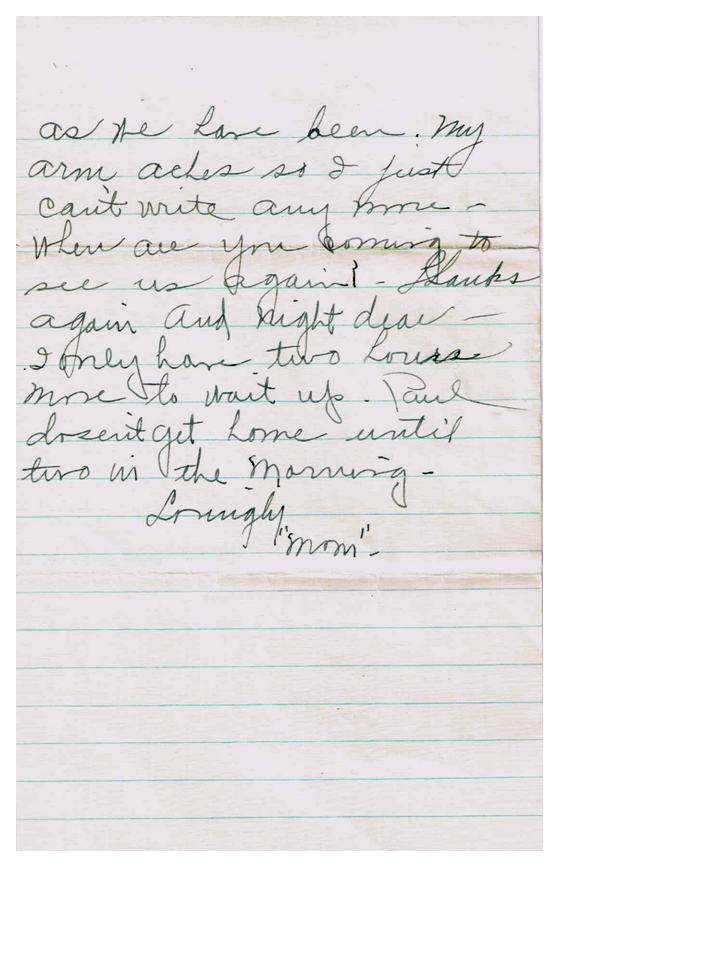 as we have been. My
arm aches so I just
can't write any more -
When are you coming to
see us again? - Thanks
again and night dear -
I only have two hours
more to wait up. Paul
dosen't get home until
two in the morning -
Lovingly
"Mom" -